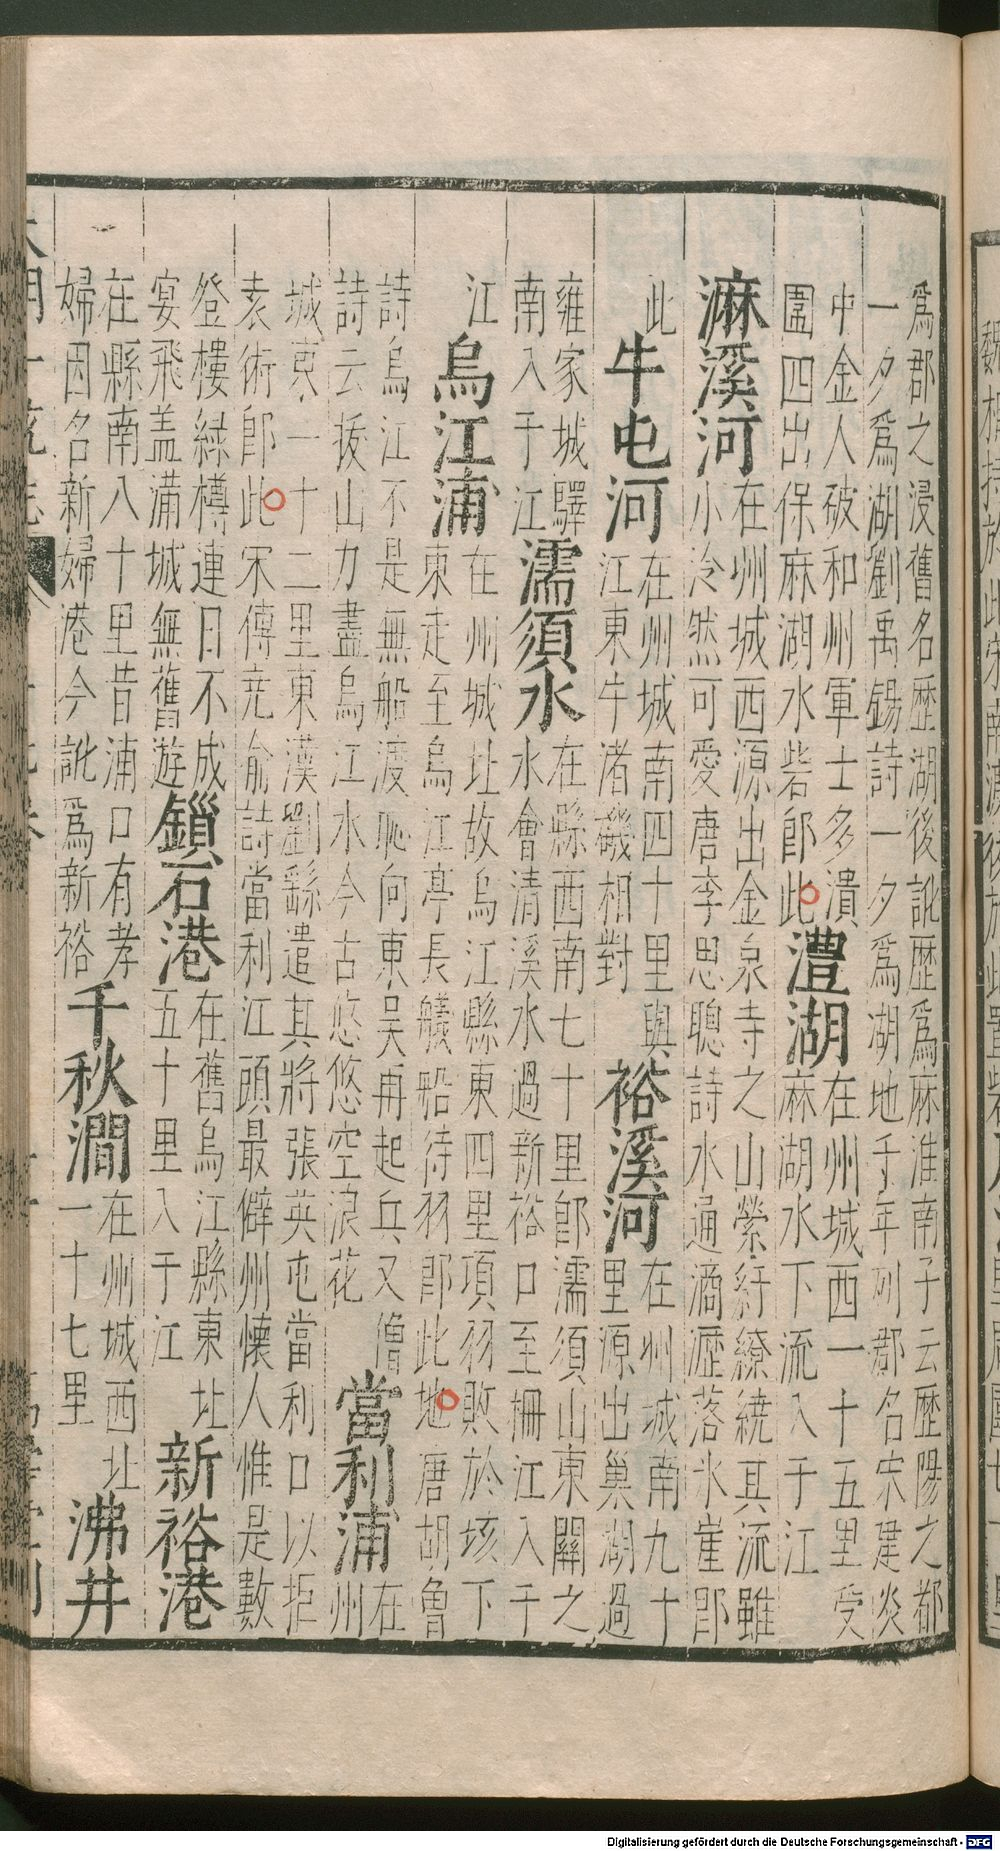 爲郡之浸舊名歷湖後訛歷爲麻淮南子云歷陽之都
一夕爲湖劉禹錫詩一夕爲湖地千年列郡名宋建炎
中金人破和州軍士多潰
圍四出保麻湖水砦卽此
澧湖
在州城西一十五里受
麻湖水下流入于江
麻溪河
在州城西源出金泉寺之山縈紆繚繞其流雖
小泠然可愛唐李思聰詩水通滴瀝落氷崖卽
此
牛屯河
在州城南四十里與
江東牛渚磯相對
裕溪河
在州城南九十
里源出巢湖過
雍家城驛
南入于江
濡須水
在縣西南七十里卽濡須山東關之
水會清溪水過新裕口至柵江入于
江
烏江浦
在州城北故烏江縣東四里項羽敗於垓下
東走至烏江亭長艤船待羽卽此地唐胡魯
詩烏江不是無船渡恥向東吳再起兵又僧
詩云拔山力盡烏江水今古悠悠空浪花
當利浦
在
州
城東一十二里東漢劉繇遣其將張英屯當利口以拒
袁術卽此宋傅堯俞詩當利江頭最僻州懷人惟是數
登樓綠樽連日不成
宴飛盖滿城無舊遊
鎻石港
在舊烏江縣東北
五十里入于江
新裕港
在縣南八十里昔浦口有孝
婦因名新婦港今訛爲新裕
千秋澗
在州城西北
一十七里
沸井
Digitalisierung gefördert durch die Deutsche Forschungsgemeinschaft - DFG